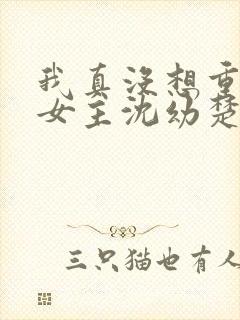 我真没想重
女主沈幼楚
三只猫也有人